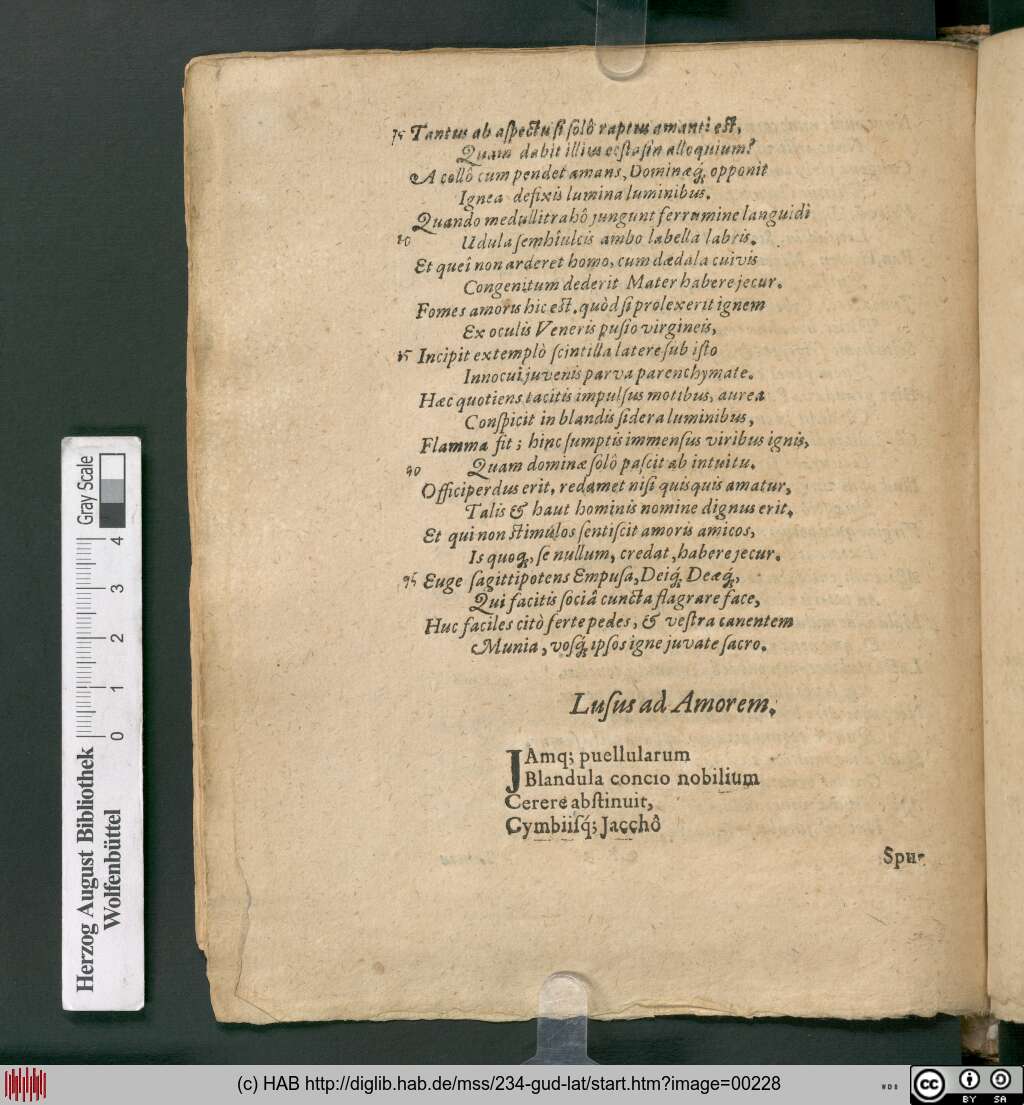 75 Tantus ab aſpectu ſi ſolô raptus amanti eſt,
Quam dabit illius ecſtaſin alloquium?
A collô cum pendet amans, Dominæq́; opponit
Ignea defixis lumina luminibus.
Quando medullitrahô jungunt ferrumine languidi
20 Udula ſemhîulcis ambo labella labris.
Et queî non arderet homo, cum dædala cuivis
Congenitum dederit Mater habere jecur.
Fomes amoris hic eſt. quòd ſi prolexerit ignem
Ex oculis Veneris puſio virgineis,
85 Incipit extemplò ſcintilla latere ſub iſto
Innocui juvenis parva parenchymate.
Hæc quotiens tacitis impulſus motibus, aurea
Conſpicit in blandis ſidera luminibus,
Flamma fit; hinc ſumptis immenſus viribus ignis,
90 Quam dominæ ſolô paſcit ab intuitu.
Officiperdus erit, redamet niſi quisquis amatur,
Talis & haut hominis nomine dignus erit.
Et qui non ſtimulos ſentiſcit amoris amicos,
Is quoq́;, ſe nullum, credat, habere jecur.
95 Euge ſagittipotens Empuſa, Deiq́; Deæq́;,
Qui facitis ſociâ cuncta flagrare face,
Huc faciles citò ferte pedes, & veſtra canentem
Munia, voſq́; ipſos igne juvate ſacro.
Luſus ad Amorem.
JAmq; puellularum
Blandula concio nobilium
Cerere abſtinuit,
Cymbiiſq́; Jacchô
Spu-
Gray Scale
4
3
2
1
0
Herzog August Bibliothek
Wolfenbüttel
(c) HAB http://diglib.hab.de/mss/234-gud-lat/start.htm?image=00228
WDB
cc
BY SA